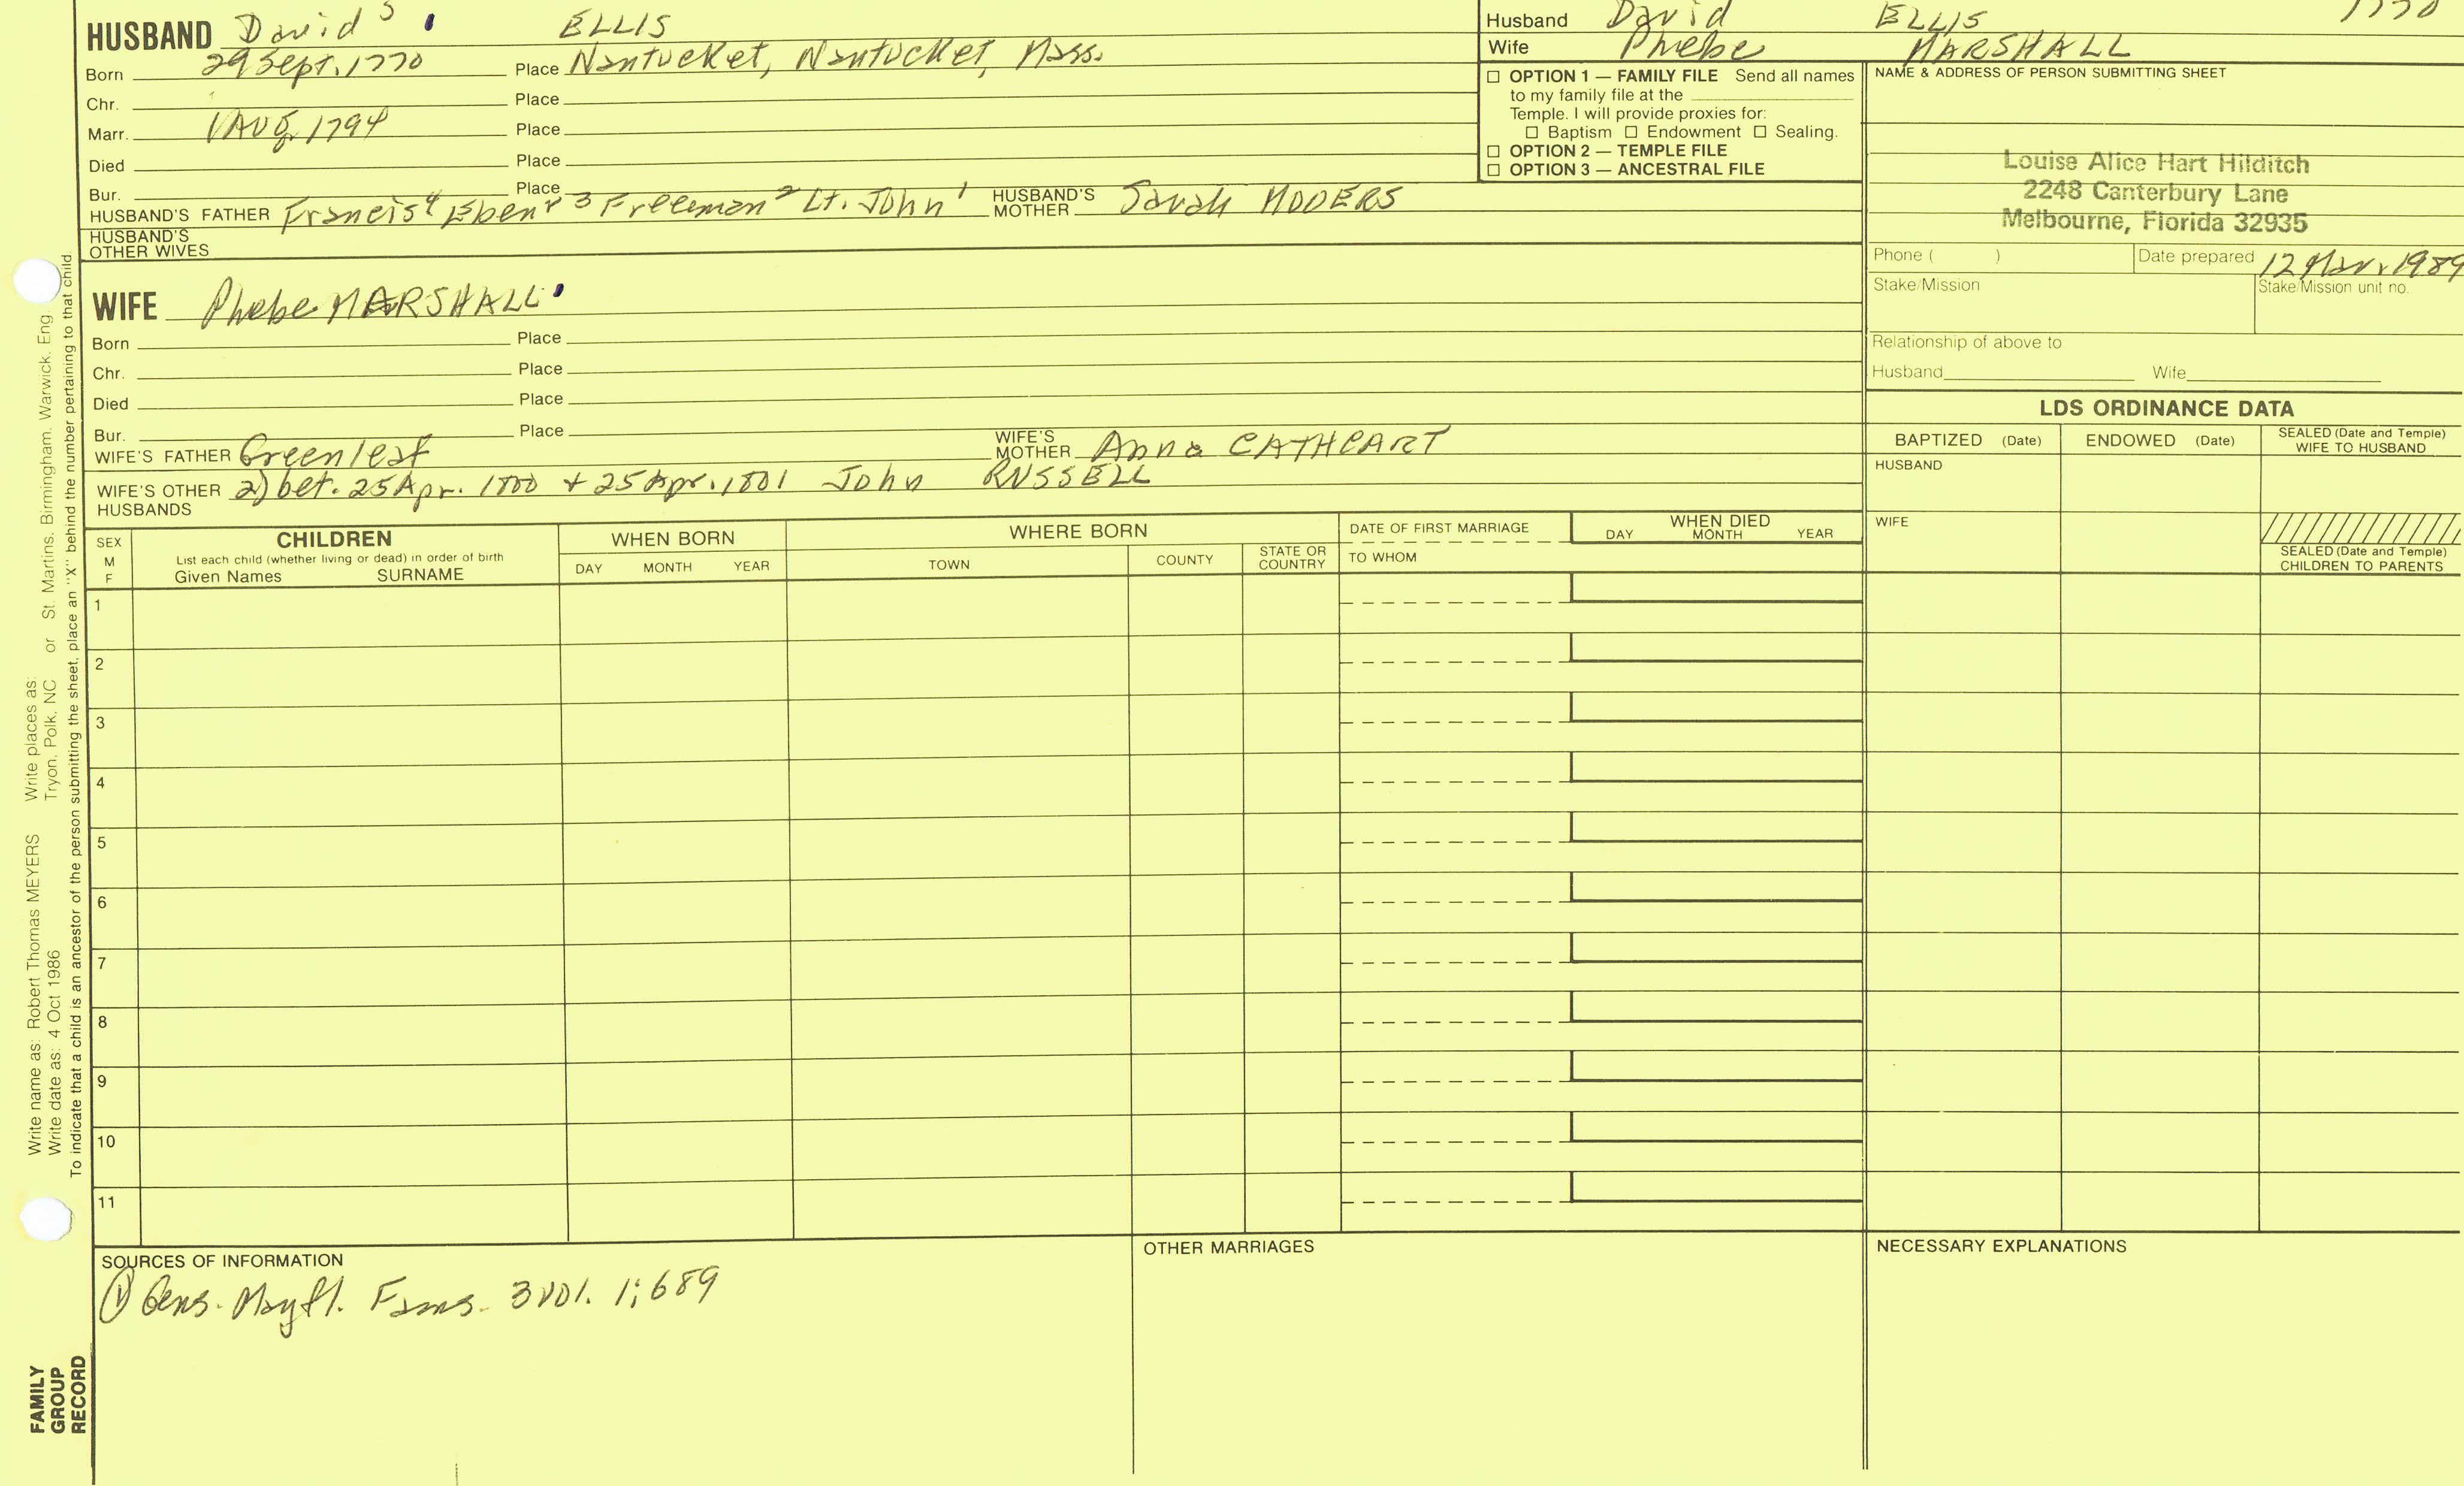 HUSBAND David 5 ELLIS
Born 29 Sept. 1770 Place Nantucket, Nantucket, Mass.
Chr. Place
Marr. 1 Aug. 1794 Place
Died Place
Bur. Place
HUSBAND'S FATHER Francis 4 Eben r 3 Freeman 2 Lt. John 1 HUSBAND'S MOTHER Sarah MOOERS
HUSBAND'S OTHER WIVES
WIFE Phebe MARSHALL
Born Place
Chr. Place
Died Place
Bur. Place
WIFE'S FATHER Greenleaf WIFE'S MOTHER Anna CATHCART
WIFE'S OTHER HUSBANDS 2) bet. 25 Apr. 1800 + 25 Apr. 1801 John RUSSELL
Husband David ELLIS 1770
Wife Phebe MARSHALL
☐ OPTION 1 — FAMILY FILE Send all names
to my family file at the
Temple. I will provide proxies for:
☐ Baptism ☐ Endowment ☐ Sealing.
☐ OPTION 2 — TEMPLE FILE
☐ OPTION 3 — ANCESTRAL FILE
NAME & ADDRESS OF PERSON SUBMITTING SHEET
Louise Alice Hart Hilditch
2248 Canterbury Lane
Melbourne, Florida 32935
Phone ( ) Date prepared 12 Mar. 1989
Stake/Mission Stake/Mission unit no.
Relationship of above to
Husband Wife
LDS ORDINANCE DATA
BAPTIZED (Date) ENDOWED (Date) SEALED (Date and Temple) WIFE TO HUSBAND
HUSBAND
WIFE
SEALED (Date and Temple)
CHILDREN TO PARENTS
SEX M F
CHILDREN
List each child (whether living or dead) in order of birth
Given Names SURNAME
WHEN BORN
DAY MONTH YEAR
WHERE BORN
TOWN COUNTY STATE OR COUNTRY
DATE OF FIRST MARRIAGE
TO WHOM
WHEN DIED
DAY MONTH YEAR
1
2
3
4
5
6
7
8
9
10
11
SOURCES OF INFORMATION
① Gens. Mayfl. Fams. 3 vol. 1; 689
OTHER MARRIAGES
NECESSARY EXPLANATIONS
Write name as: Robert Thomas MEYERS Write places as:
Write date as: 4 Oct 1986 Tryon, Polk, NC or St. Martins, Birmingham, Warwick, Eng.
To indicate that a child is an ancestor of the person submitting the sheet, place an "X" behind the number pertaining to that child
FAMILY
GROUP
RECORD